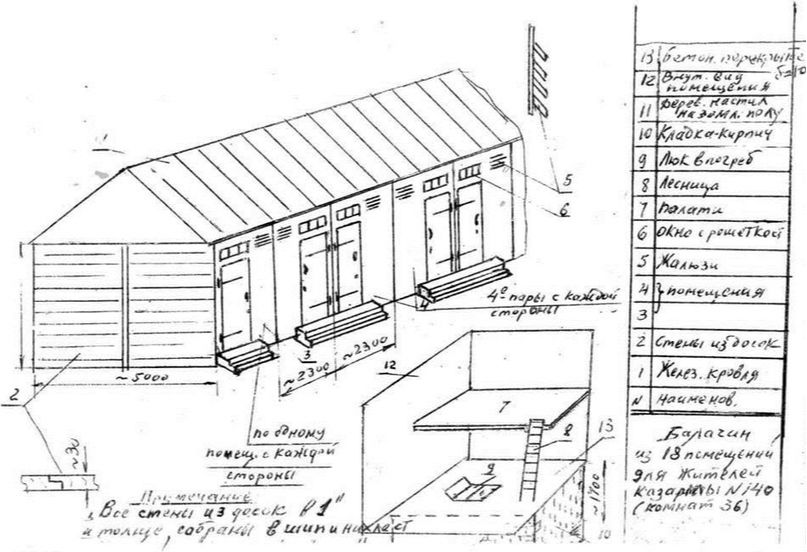 1
5
6
4º пары с каждой
стороны
3
~2300
~2300
12
~5000
2
7
8
13
9
по одному
помещ. с каждой
стороны
~30
~1700
10
Примечание
Все стены из досок в 1"
толще, собраны в шип и нахлест
13 Бетон. перекрытие
12 Внут. вид
помещения
11 Дерев. настил
на земл. полу
10 Кладка-кирпич
9 Люк в погреб
8 Лесница
7 Палати
6 Окно с решеткой
5 Жалюзи
4 помещения
3
2 Стены из досок
1 Желез. кровля
N наименов.
Балаган
из 18 помещений
для жителей
казармы N 140
(комнат 36)